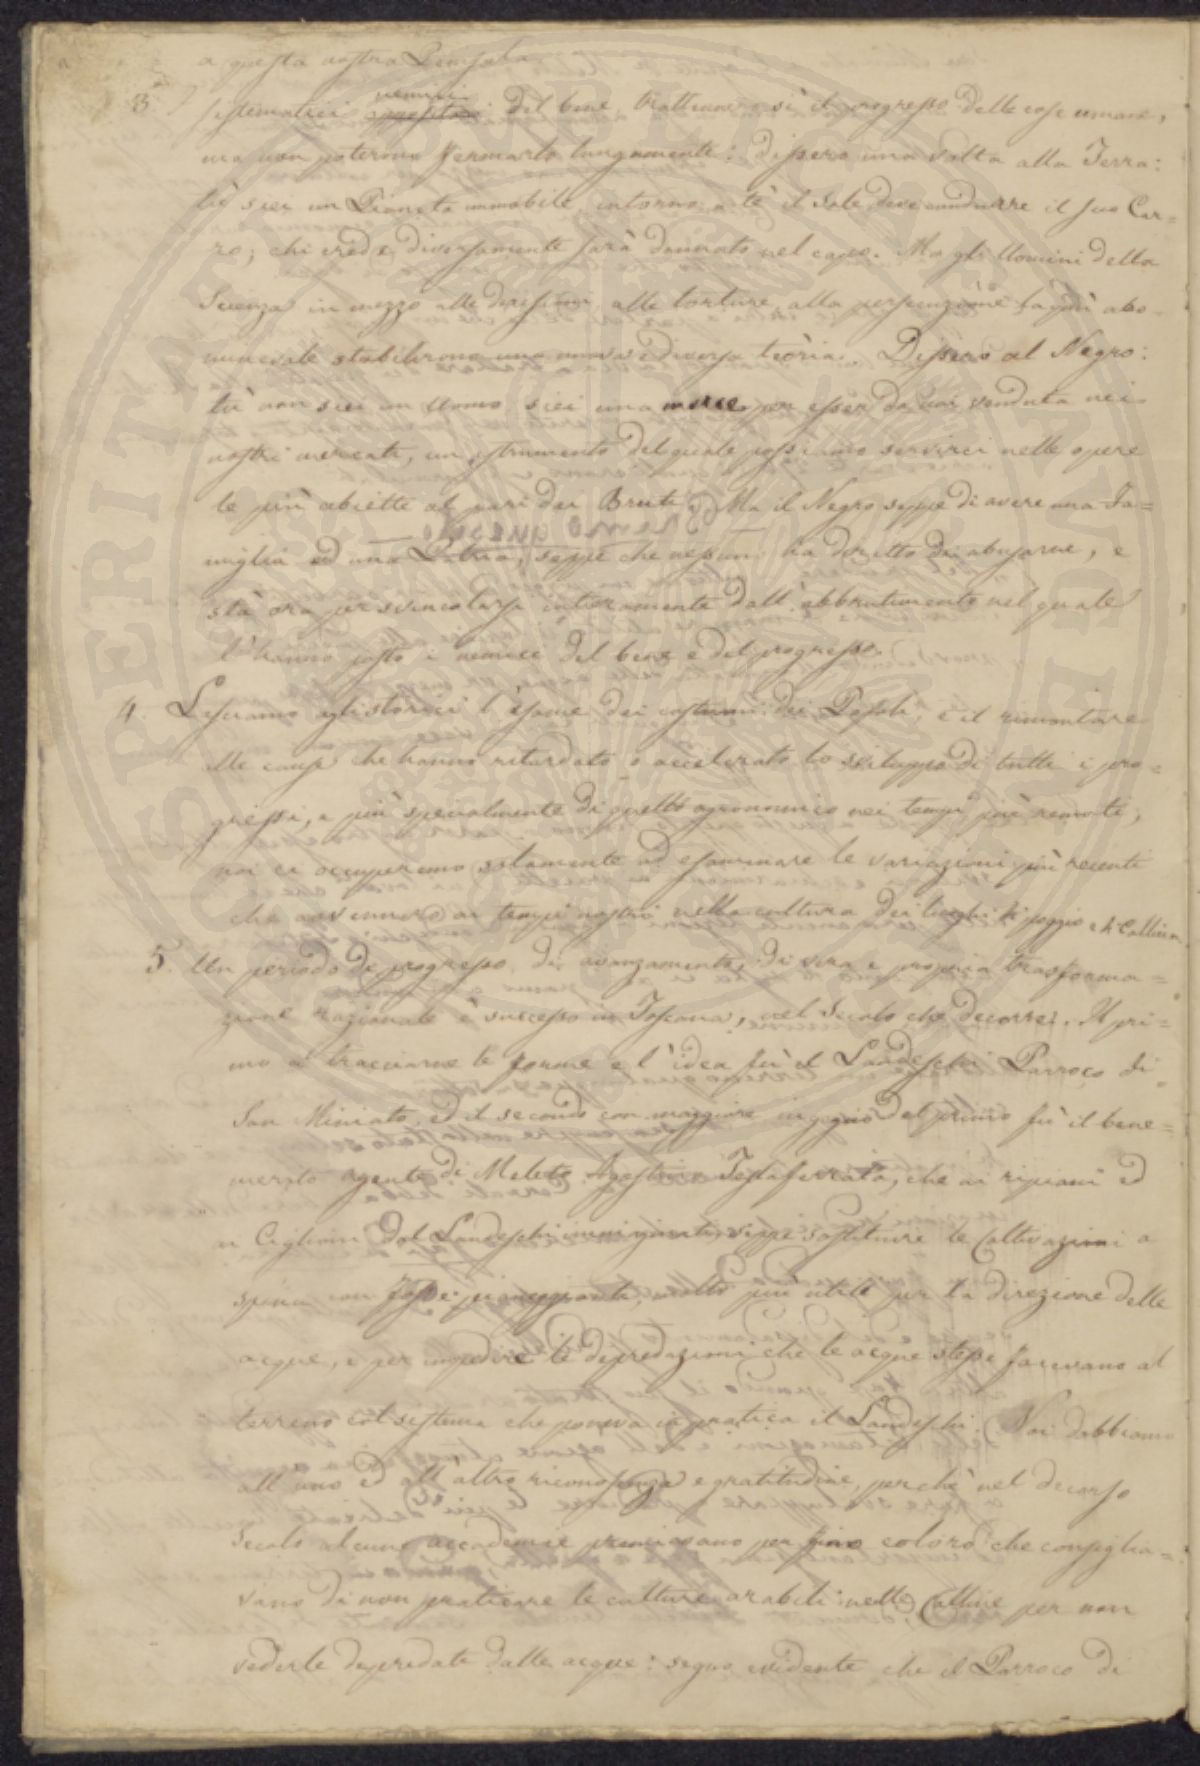 a questa nostra Penisola.
3 Sistematici oppositori nemici del bene, trattennero sì il progresso delle cose umane,
ma non poterono fermarlo lungamente: Dissero una volta alla Terra:
tù siei un Pianeta immobile, intorno a tè il Sole deve condurre il suo Car=
ro; chi crede diversamente sarà dannato nel capo. Ma gli Uomini della
Scienza in mezzo alle alle torture, alla persecuzione la più abo=
minevole stabilirono una nuova e diversa teoria. Dissero al Negro:
tù non siei un Uomo, siei una merce per esser da noi venduta nei
nostri mercati, un istrumento del quale possiamo servirci nelle opere
le più abiette al pari dei Bruti. Ma il Negro seppe di avere una Fa=
miglia ed una Patria, seppe che nessuno ha diritto di abusarne, e
stà ora per svincolarsi interamente dall'abbrutimento nel quale
l'hanno posto i nemici del bene e del progresso.
4. Lasciamo agli storici l'esame dei costumi dei Popoli, e il rimontare
alle cause che hanno ritardato o accelerato lo sviluppo di tutti i pro=
gressi, e più specialmente di quello agronomico nei tempi più remoti,
noi ci occuperemo solamente ad esaminare le variazioni più recenti
che avvennero ai tempi nostri nella cultura dei luoghi di poggio e di Collina.
5. Un periodo di progresso, di avanzamento, di vera e propria trasforma=
zione razionale è successo in Toscana, nel Secolo che decorre. Il pri=
mo a tracciarne le forme e l'idea fù il Landeschi Parroco di
San Miniato, ed il secondo con maggiore ingegno del primo fù il bene=
merito agente di Meleto Agostino Testaferrata, che ai ripiani ed
ai Ciglioni dal Landeschi immaginati, seppe sostituire le Coltivazioni a
spina con fosse pianeggianti, molto più utili per la direzione delle
acque, e per impedire le depredazioni che le acque stesse facevano al
terreno col sistema che poneva in pratica il Landeschi. Noi dobbiamo
all'uno ed all'altro riconoscenza e gratitudine, perchè nel decorso
Secolo alcune accademie premiavano per fino coloro che consiglia=
vano di non praticare le culture arabili nelle Colline per non
vederle depredate dalle acque: segno evidente che il Parroco di